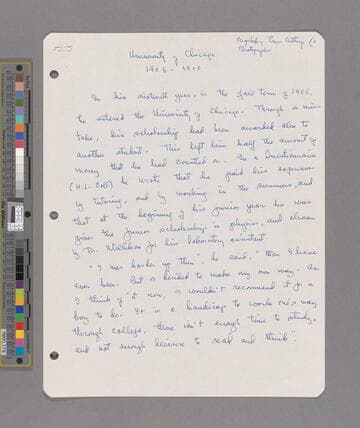 University of Chicago
1906 - 1910
In his sixteenth year, in the fall term of 1906,
he entered the University of Chicago. Through a mis-
take, his scholarship had been awarded also to
another student. This left him half the amount of
money that he had counted on. In a Questionnaire
he wrote that he paid his expenses
by tutoring, and by working in the summers, and
that at the beginning of his junior year he was
given the junior scholarship in physics, and chosen
by Dr. Millikan for his laboratory assistant.
"I was harder up then", he said, "than I have
ever been. But I decided to make my own way. As
I think of it now, I wouldn't recommend it for a
boy to do. It is a handicap to work one's way
through college, there isn't enough time to study,
and not enough leisure to read and think."